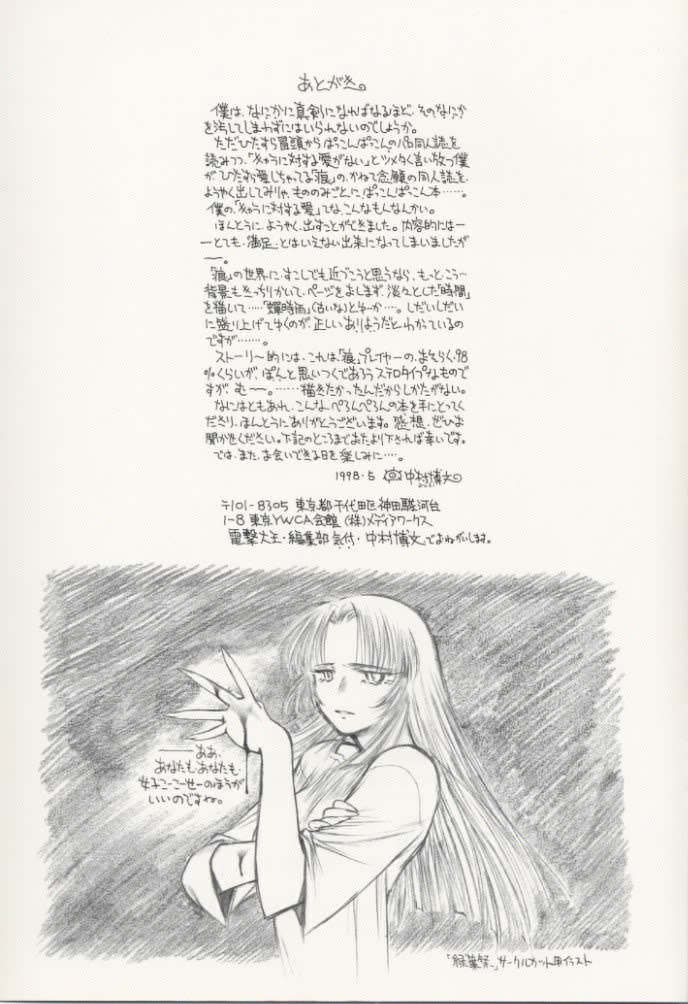 あとがき。
僕は、なにかに真剣になればなるほど、そのなにか
を汚してしまわずにはいられないのでしょうか。
ただひたすら冒頭からぱっこんぱっこんのパロ同人誌を
読みつつ、「きゃらに対する愛がない」とツメタく言い放つ僕
がひたすら愛しちゃってる「狼」の、かねて念願の同人誌を、
ようやく出してみりゃ、もののみごとに、ぱっこんぱっこん本……。
僕の、「きゃらに対する愛」てな、こんなもんなんかい。
ほんとうに、ようやく、出すことができました。内容的にはー
ーとても、満足、とはいえない出来になってしまいましたが
ー。
「狼」の世界に、すこしでも近づこうと思うなら、もっと、こう…
背景もきっちりかいて、ページをおしまず、淡々とした「時間」
を描いて……「蝉時雨」(古いな)とゆーか…。しだいしだい
に盛り上げてゆくのが、正しいありようだと、わかっているの
ですが……。
ストーリー的には、これは、「狼」プレイヤーの、おそらく、98
%くらいが、ぽんと思いつくであろうステロタイプなもので
すが、むー。……描きたかったんだからしかたがない。
なにはともあれ、こんな、ぺろんぺろんの本を手にとってく
ださり、ほんとうにありがとうございます。感想、ぜひお
聞かせください。下記のところまでおたより下されば幸いです。
では、また、お会いできる日を楽しみに…。
1998.5 中村博文
〒101-8305 東京都千代田区神田駿河台
1-8 東京YWCA会館 (株)メディアワークス
電撃大王・編集部気付・中村博文でおねがいします。
――ああ、
あなたもあなたも
女子こーこーせーのほうが
いいのですね。
「緑葉祭」サークルカット用イラスト